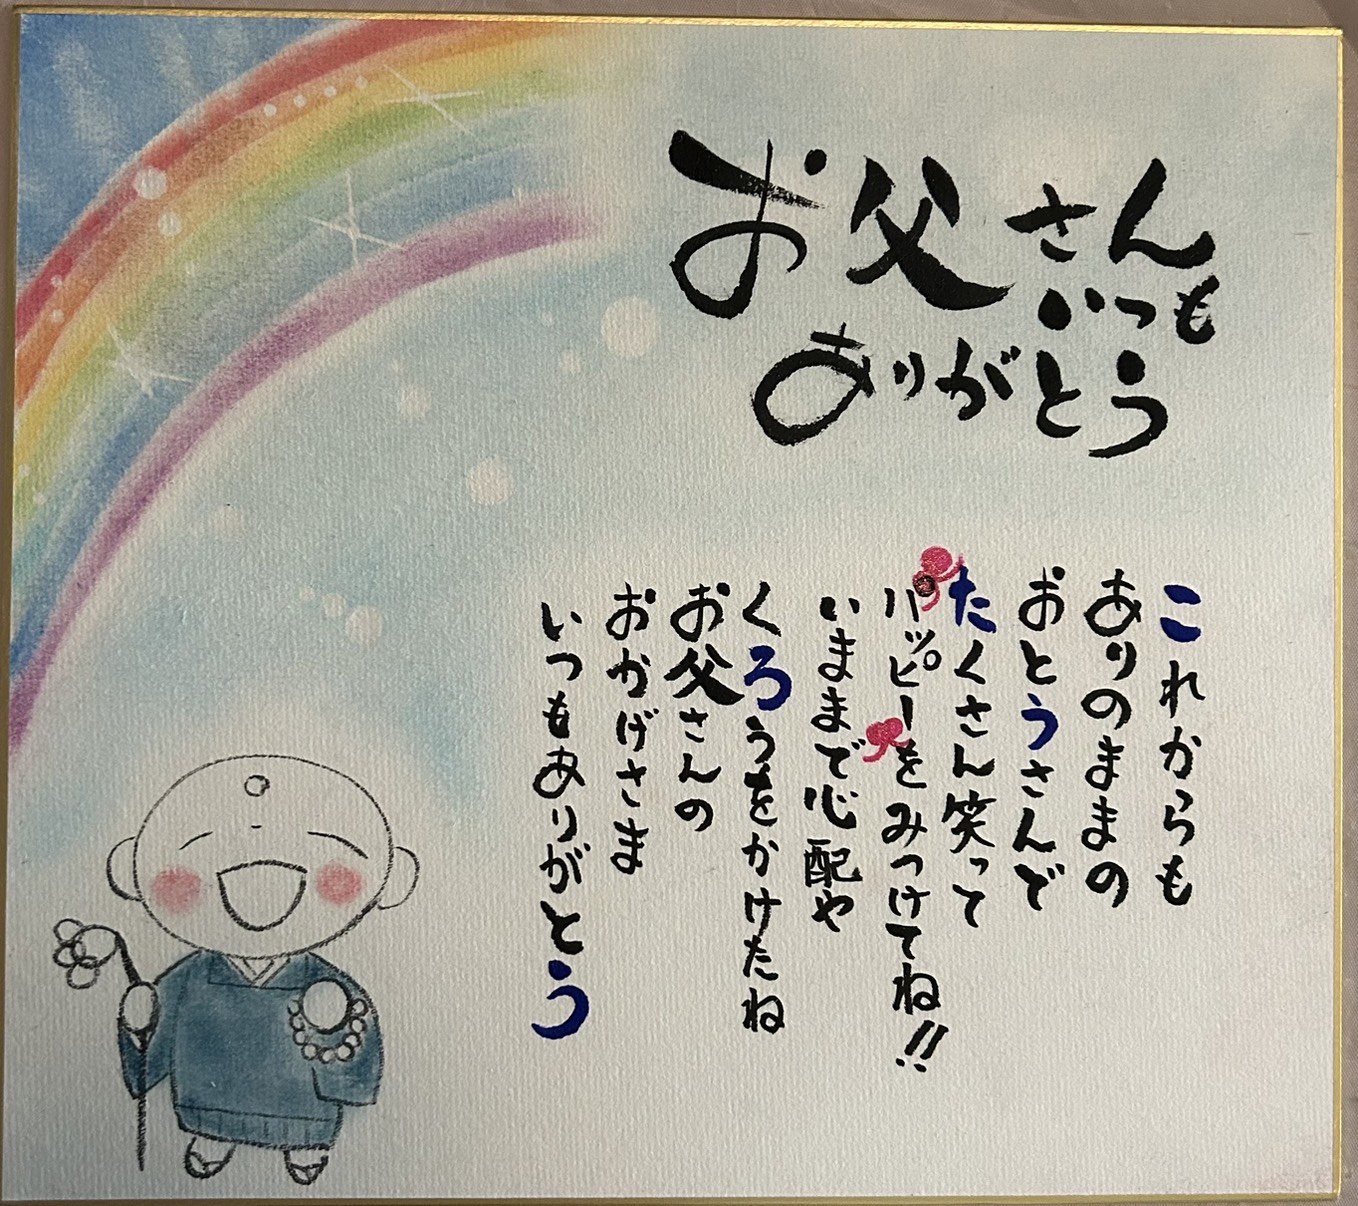 お父さん
いつも
ありがとう
これからも
ありのままの
おとうさんで
たくさん笑って
ハッピーをみつけてね!!
いままで心配や
くろうをかけたね
お父さんの
おかげさま
いつもありがとう